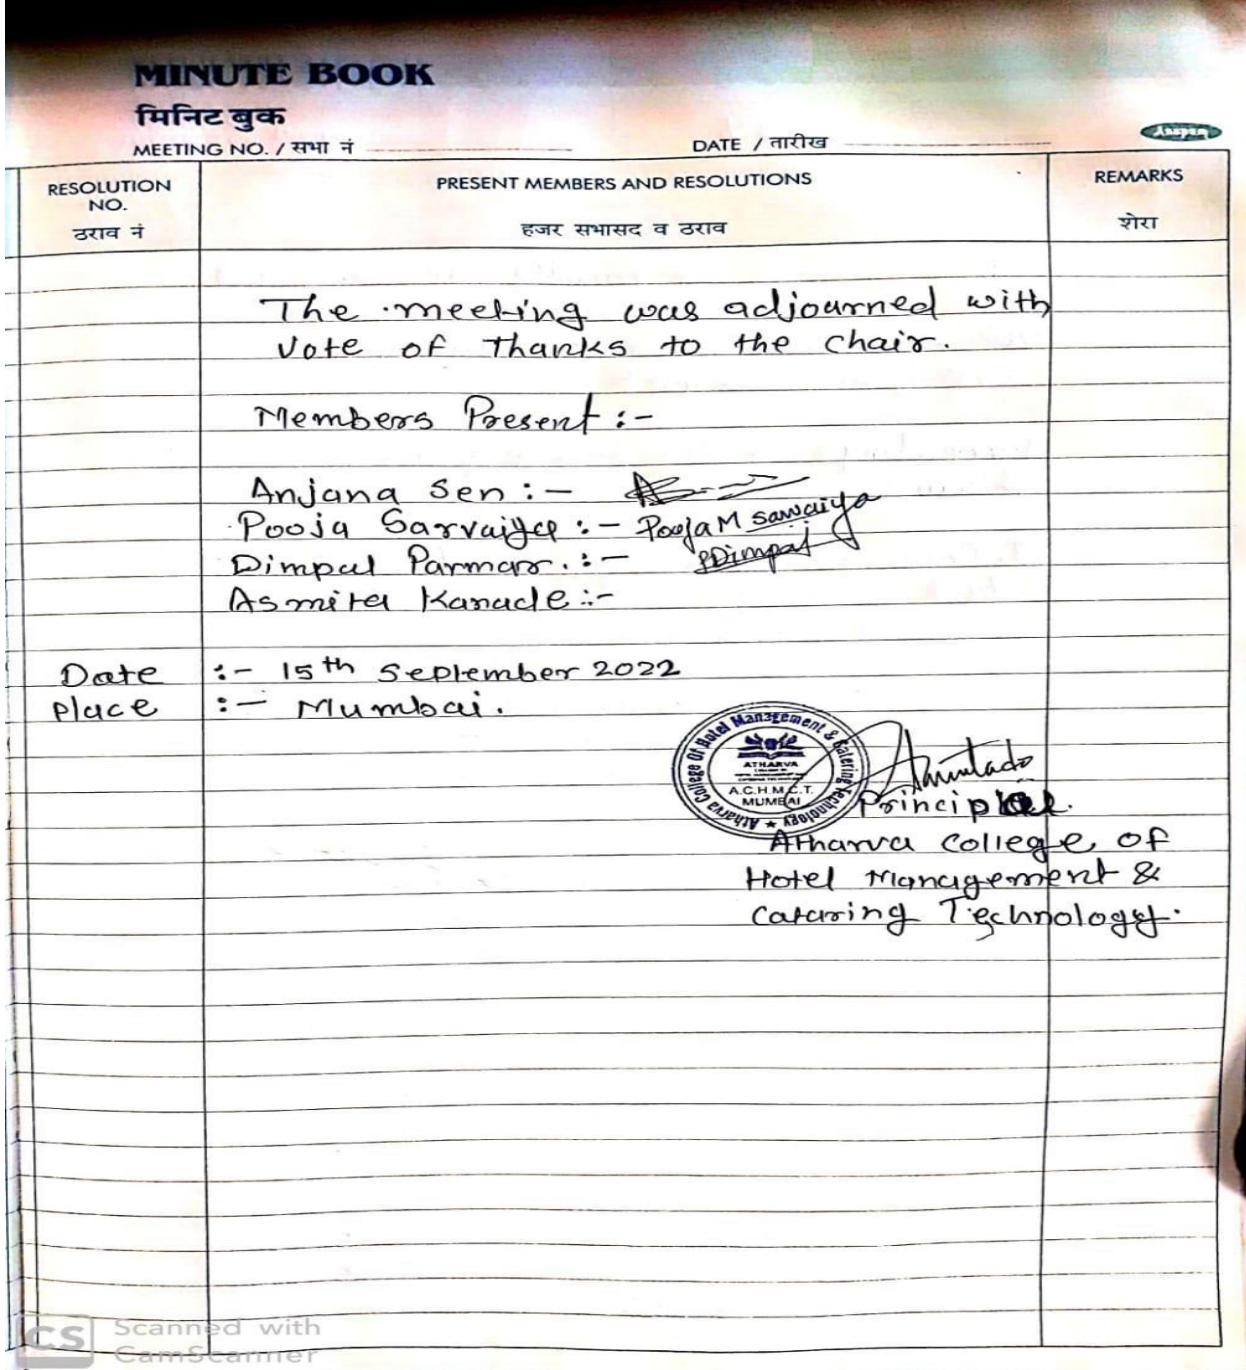 MINUTE BOOK
मिनिट बुक
MEETING NO. / सभा नं
DATE / तारीख
Anupam
RESOLUTION NO.
ठराव नं
PRESENT MEMBERS AND RESOLUTIONS
हजर सभासद व ठराव
REMARKS
शेरा
The meeting was adjourned with
vote of thanks to the chair.
Members Present :-
Anjana Sen :-
Pooja Sarvaiya :- Pooja M Sarvaiya
Dimpal Parmar. :- PDimpal
Asmita Kanade :-
Date :- 15th September 2022
Place :- Mumbai.
Atharva College Of Hotel Management & Catering Technology ★
ATHARVA
A.C.H.M.C.T.
MUMBAI
Principal.
Atharva College of
Hotel Management &
Cataring Technology.
CS Scanned with
CamScanner